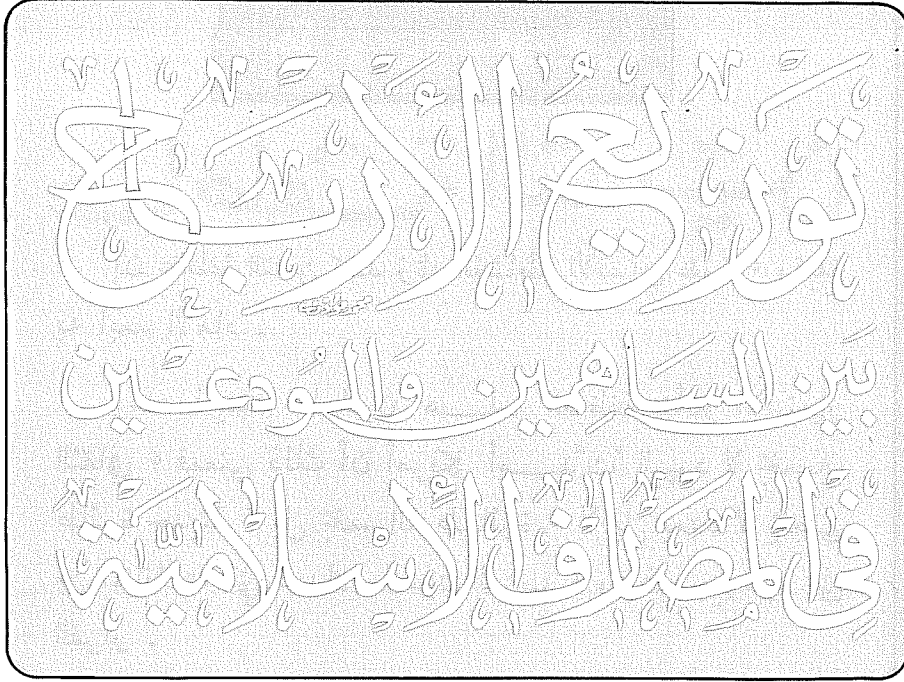 توزيع الأرباح
بين المساهمين والمودعين
في المصارف الإسلامية